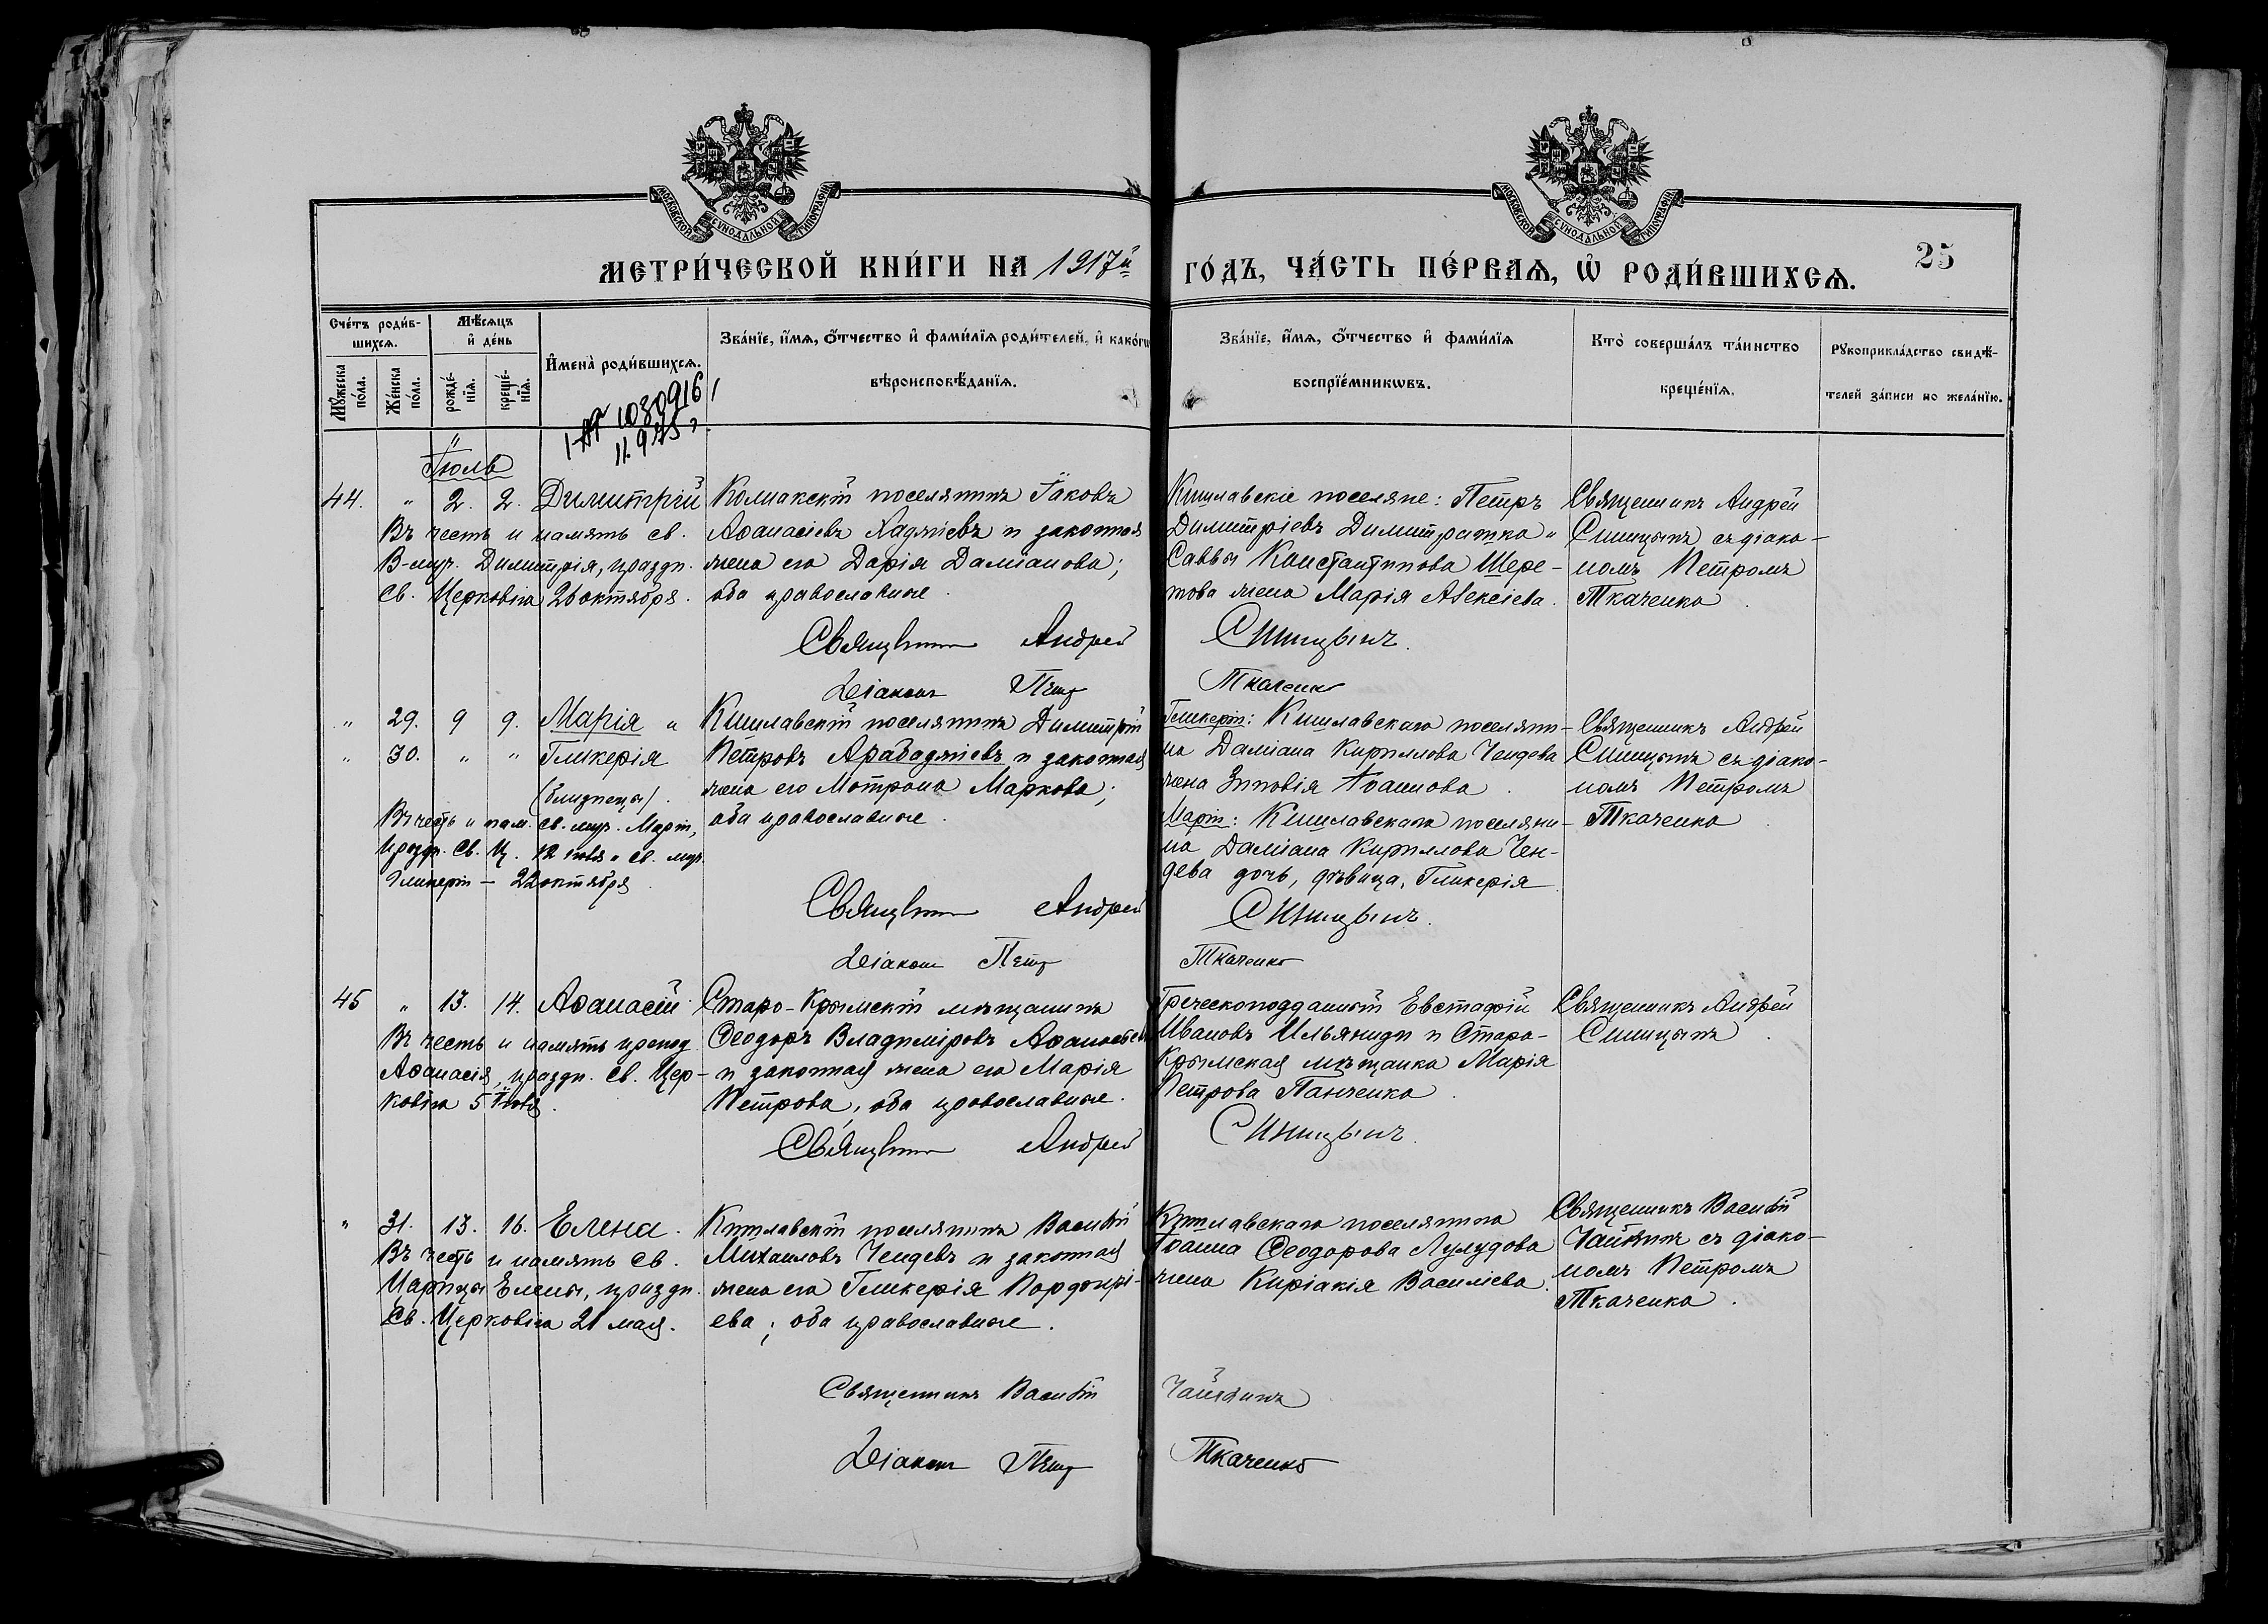 МОСКОВСКОЙ СѴНОДАЛЬНОЙ ТИПОГРАФІИ
МОСКОВСКОЙ СѴНОДАЛЬНОЙ ТИПОГРАФІИ
25
МЕТРИ́ЧЕСКОЙ КНИ́ГИ НА 1917й ГО́ДЪ, ЧА́СТЬ ПЕ́РВАѦ, Ѽ РОДИ́ВШИХСѦ.
Сче́тъ роди́в-
шихсѧ.
Мꙋ́жеска по́ла.
Же́нска по́ла.
Мѣ́сѧцъ
и҆ де́нь
рожде́-
нїѧ.
креще́-
нїѧ.
И҆мена̀ роди́вшихсѧ.
Зва́нїе, и҆́мѧ, ѻ҆́тчество и҆ фами́лїѧ роди́телей, и҆ како́гѡ
вѣроисповѣ́данїѧ.
Зва́нїе, и҆́мѧ, ѻ҆́тчество и҆ фами́лїѧ
воспрїе́мникѡвъ.
Кто̀ соверша́лъ та́инство
креще́нїѧ.
Рꙋкоприкла́дство свидѣ́-
телей за́писи по жела́нїю.
1030916
Іюль
44. " 2. 2. Димитрій
Въ честь и память св.
В-муч. Димитрія, праздн.
Св. Церковію 26 октября.
Колпакскій поселянинъ Іаковъ
Аѳанасіевъ Хаджіевъ и законная
жена его Дарія Даміанова;
оба православные.
Кишлавскіе поселяне: Петръ
Димитріевъ Димитрашка и
Саввы Константинова Шере-
това жена Марія Алексіева.
Священникъ Андрей
Синицынъ съ діако-
номъ Петромъ
Ткаченко.
Священникъ Андрей Синицынъ.
Діаконъ Петръ Ткаченко
" 29. 9 9. Марія и
" 30. " " Гликерія
(близнецы).
Въ честь и пам. св. муч. Маріи,
праздн. Св. Ц. 12 іюля и св. муч.
Гликеріи — 22 октября.
Кишлавскій поселянинъ Димитрій
Петровъ Арабаджіевъ и законная
жена его Мотрона Маркова;
оба православные.
Гликеріи: Кишлавскаго поселяни-
на Даміана Кириллова Чендева
жена Зиновія Іоаннова.
Маріи: Кишлавскаго поселяни-
на Даміана Кириллова Чен-
дева дочь, дѣвица, Гликерія.
Священникъ Андрей
Синицынъ съ діако-
номъ Петромъ
Ткаченко.
Священникъ Андрей Синицынъ.
Діаконъ Петръ Ткаченко
45 " 13. 14. Аѳанасій
Въ честь и память препод.
Аѳанасія, праздн. Св. Цер-
ковію 5 іюля.
Старо-Крымскій мѣщанинъ
Ѳеодоръ Владиміровъ Аѳанасьевъ
и законная жена его Марія
Петрова, оба православные.
Греческоподданный Евстафій
Ивановъ Ильяниди и Старо-
Крымская мѣщанка Марія
Петрова Панченко.
Священникъ Андрей
Синицынъ.
Священникъ Андрей Синицынъ.
" 31. 13. 16. Елена.
Въ честь и память Св.
Царицы Елены, праздн.
Св. Церковію 21 мая.
Кишлавскій поселянинъ Василій
Михаиловъ Чендевъ и законная
жена его Гликерія Порфирі-
ева; оба православные.
Кишлавскаго поселянина
Іоанна Ѳеодорова Лулудова
жена Киріакія Василіева.
Священникъ Василій
Чайкинъ съ діако-
номъ Петромъ
Ткаченко.
Священникъ Василій Чайкинъ
Діаконъ Петръ Ткаченко